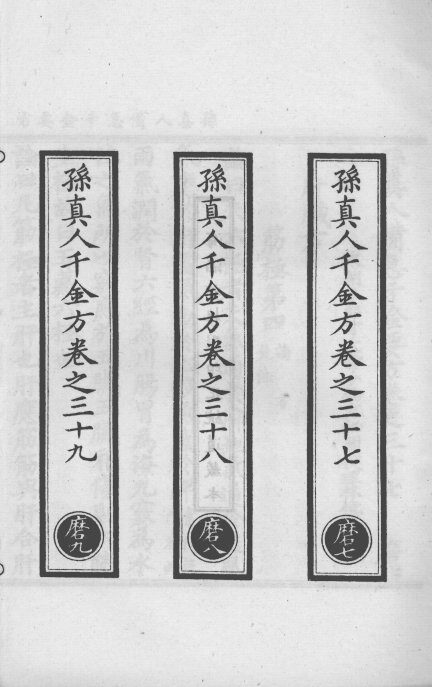 孫真人千金方卷之三十七
磨七
孫真人千金方卷之三十八
磨八
孫真人千金方卷之三十九
磨九